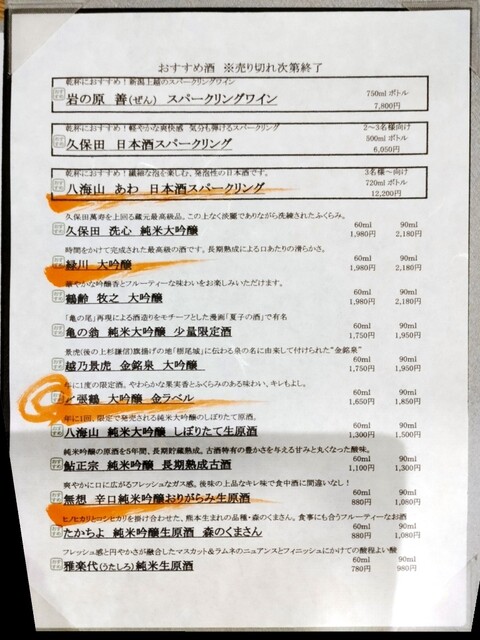 おすすめ酒 ※売り切れ次第終了
乾杯におすすめ！新潟上越のスパークリングワイン
岩の原 善(ぜん) スパークリングワイン
750ml ボトル
7,800円
乾杯におすすめ！軽やかな爽快感 気分も弾けるスパークリング
久保田 日本酒スパークリング
2～3名様向け
500ml ボトル
6,050円
乾杯におすすめ！繊細な泡を楽しむ、発泡性の日本酒です。
八海山 あわ 日本酒スパークリング
3名様～向け
720ml ボトル
12,200円
久保田萬寿を上回る蔵元最高級品。この上なく淡麗でありながら洗練されたふくらみ。
久保田 洗心 純米大吟醸
60ml 90ml
1,980円 2,180円
時間をかけて完成された最高級の酒です。長期熟成による口あたりの滑らかさ。
緑川 大吟醸
60ml 90ml
1,980円 2,180円
華やかな吟醸香とフルーティーな味わいをお楽しみいただけます。
鶴齢 牧之 大吟醸
60ml 90ml
1,980円 2,180円
「亀の尾」再現による酒造りをモチーフとした漫画“夏子の酒”で有名
亀の翁 純米大吟醸 少量限定酒
60ml 90ml
1,750円 1,950円
景虎(後の上杉謙信)旗揚げの地「栃尾城」に伝わる泉の名に由来して付けられた“金銘泉”
越乃景虎 金銘泉 大吟醸
60ml 90ml
1,750円 1,950円
年に1度の限定酒。やわらかな果実香とふくらみのある味わい、キレもよし。
〆張鶴 大吟醸 金ラベル
60ml 90ml
1,650円 1,850円
年に1回、限定で発売される純米大吟醸のしぼりたて原酒。
八海山 純米大吟醸 しぼりたて原酒
60ml 90ml
1,300円 1,500円
純米吟醸の原酒を5年間、長期貯蔵熟成。古酒特有の豊かさを与える甘みと丸くなった酸味。
鮎正宗 純米吟醸 長期熟成古酒
60ml 90ml
1,100円 1,300円
爽やかに口に広がるフレッシュなガス感。後味の上品なキレ味で食中酒に間違いなし！
無想 辛口純米吟醸おりがらみ生原酒
60ml 90ml
880円 1,080円
ヒノヒカリとコシヒカリを掛け合わせた、熊本生まれの品種・森のくまさん。食事にも合うフルーティーなお酒
たかちよ 純米吟醸生原酒 森のくまさん
60ml 90ml
880円 1,080円
フレッシュ感と円やかさが融合したマスカット&ラムネのニュアンスとフィニッシュにかけての酸程よい酸
雅楽代(うたしろ)純米生原酒
60ml 90ml
780円 980円